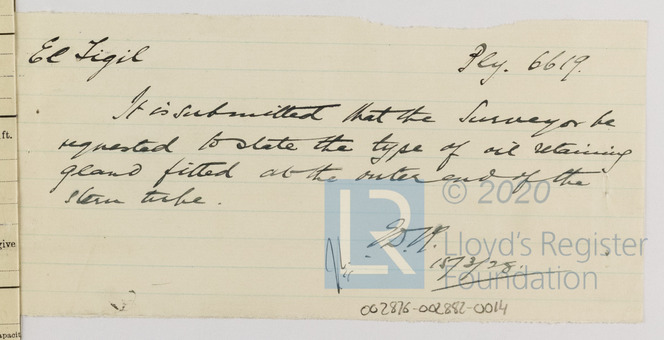 El Tigil Ply. 6619.
It is submitted that the Surveyor be
requested to state the type of oil retaining
gland fitted at the outer end of the
stern tube.
15/3/28.
002876-002882-0014
© 2020
LR
Lloyd's Register
Foundation
ft.
give
apacit